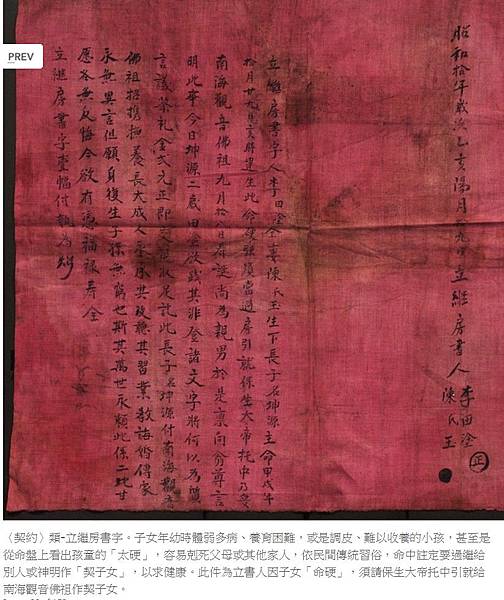 昭和拾年歲次乙亥陽月廿九日立繼房書人李田塗
陳氏玉
正
立繼房書字人李田塗仝妻陳氏玉生下長子名坤源主命甲戌年
拾月廿九日亥時建生此命硬強須當過房引就保生大帝托中乃受
南海觀音佛祖九月拾日壽誕尚為親男於是稟向翁尊言
明此事今日坤源二歲因欲踐其非登諸文字將何以為憑
言議茶礼金弍元正即交足收足訖此長子名坤源付南海觀音
佛祖招携抚養長大成人永保其聽其習業教誨婚傳家
永無異言但願身後生子孫無窮也斯其萬世永賴此係二比甘
愿各無反悔今欲有憑福祿壽全
立繼房書字壹幅付執為炤
PREV
〈契約〉類-立繼房書字。子女年幼時體弱多病、養育困難，或是調皮、難以收養的小孩，甚至是
從命盤上看出孩童的「太硬」，容易剋死父母或其他家人，依民間傳統習俗，命中註定要過繼給
別人或神明作「契子女」，以求健康。此件為立書人因子女「命硬」，須請保生大帝托中引就給
南海觀音佛祖作契子女。